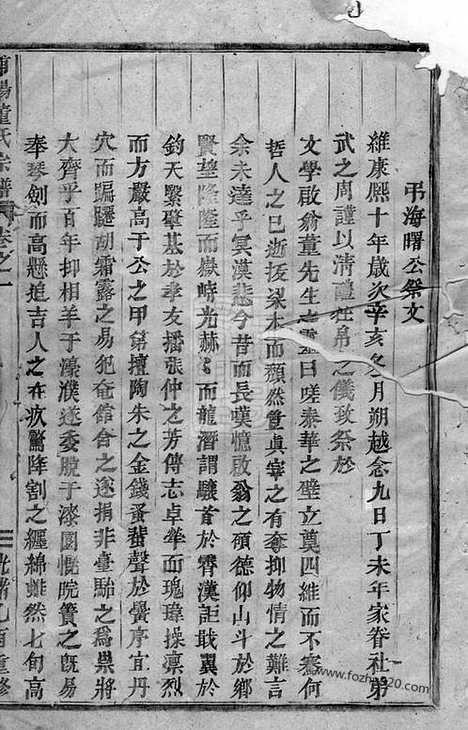 弔海曙公祭文
維康熙十年歲次辛亥冬月朔越念九日丁未年家眷社弟
武之周謹以清醴牲帛之儀致祭於
文學啟翁董先生之靈曰嗟泰華之壁立奠四維而不騫何
哲人之已逝拔梁木而頹然豈真宰之有奪抑物情之難言
余未達乎冥漠悲今昔而長嘆憶啟翁之碩德仰山斗於鄉
賢望隆隆而嶽峙光赫赫而龍潛謂驤首於霄漢詎戢翼於
鈞天緊肇基於孝友播張仲之芳傳志卓犖而瑰瑋操凜烈
而方嚴高于公之甲第擅陶朱之金錢蚤蜚聲於黌序宜丹
穴而蹁躚胡霜露之易犯奄館舍之遂捐非臺駘之為祟將
大齊乎百年抑相羊于濠濮遂委脫于漆園慨皖簀之旣易
奉琴劍而高懸追吉人之在疚驚降割之纒綿雖然七旬高
董氏宗譜
卷之一
光緒乙酉重修
www.fozhu920.com